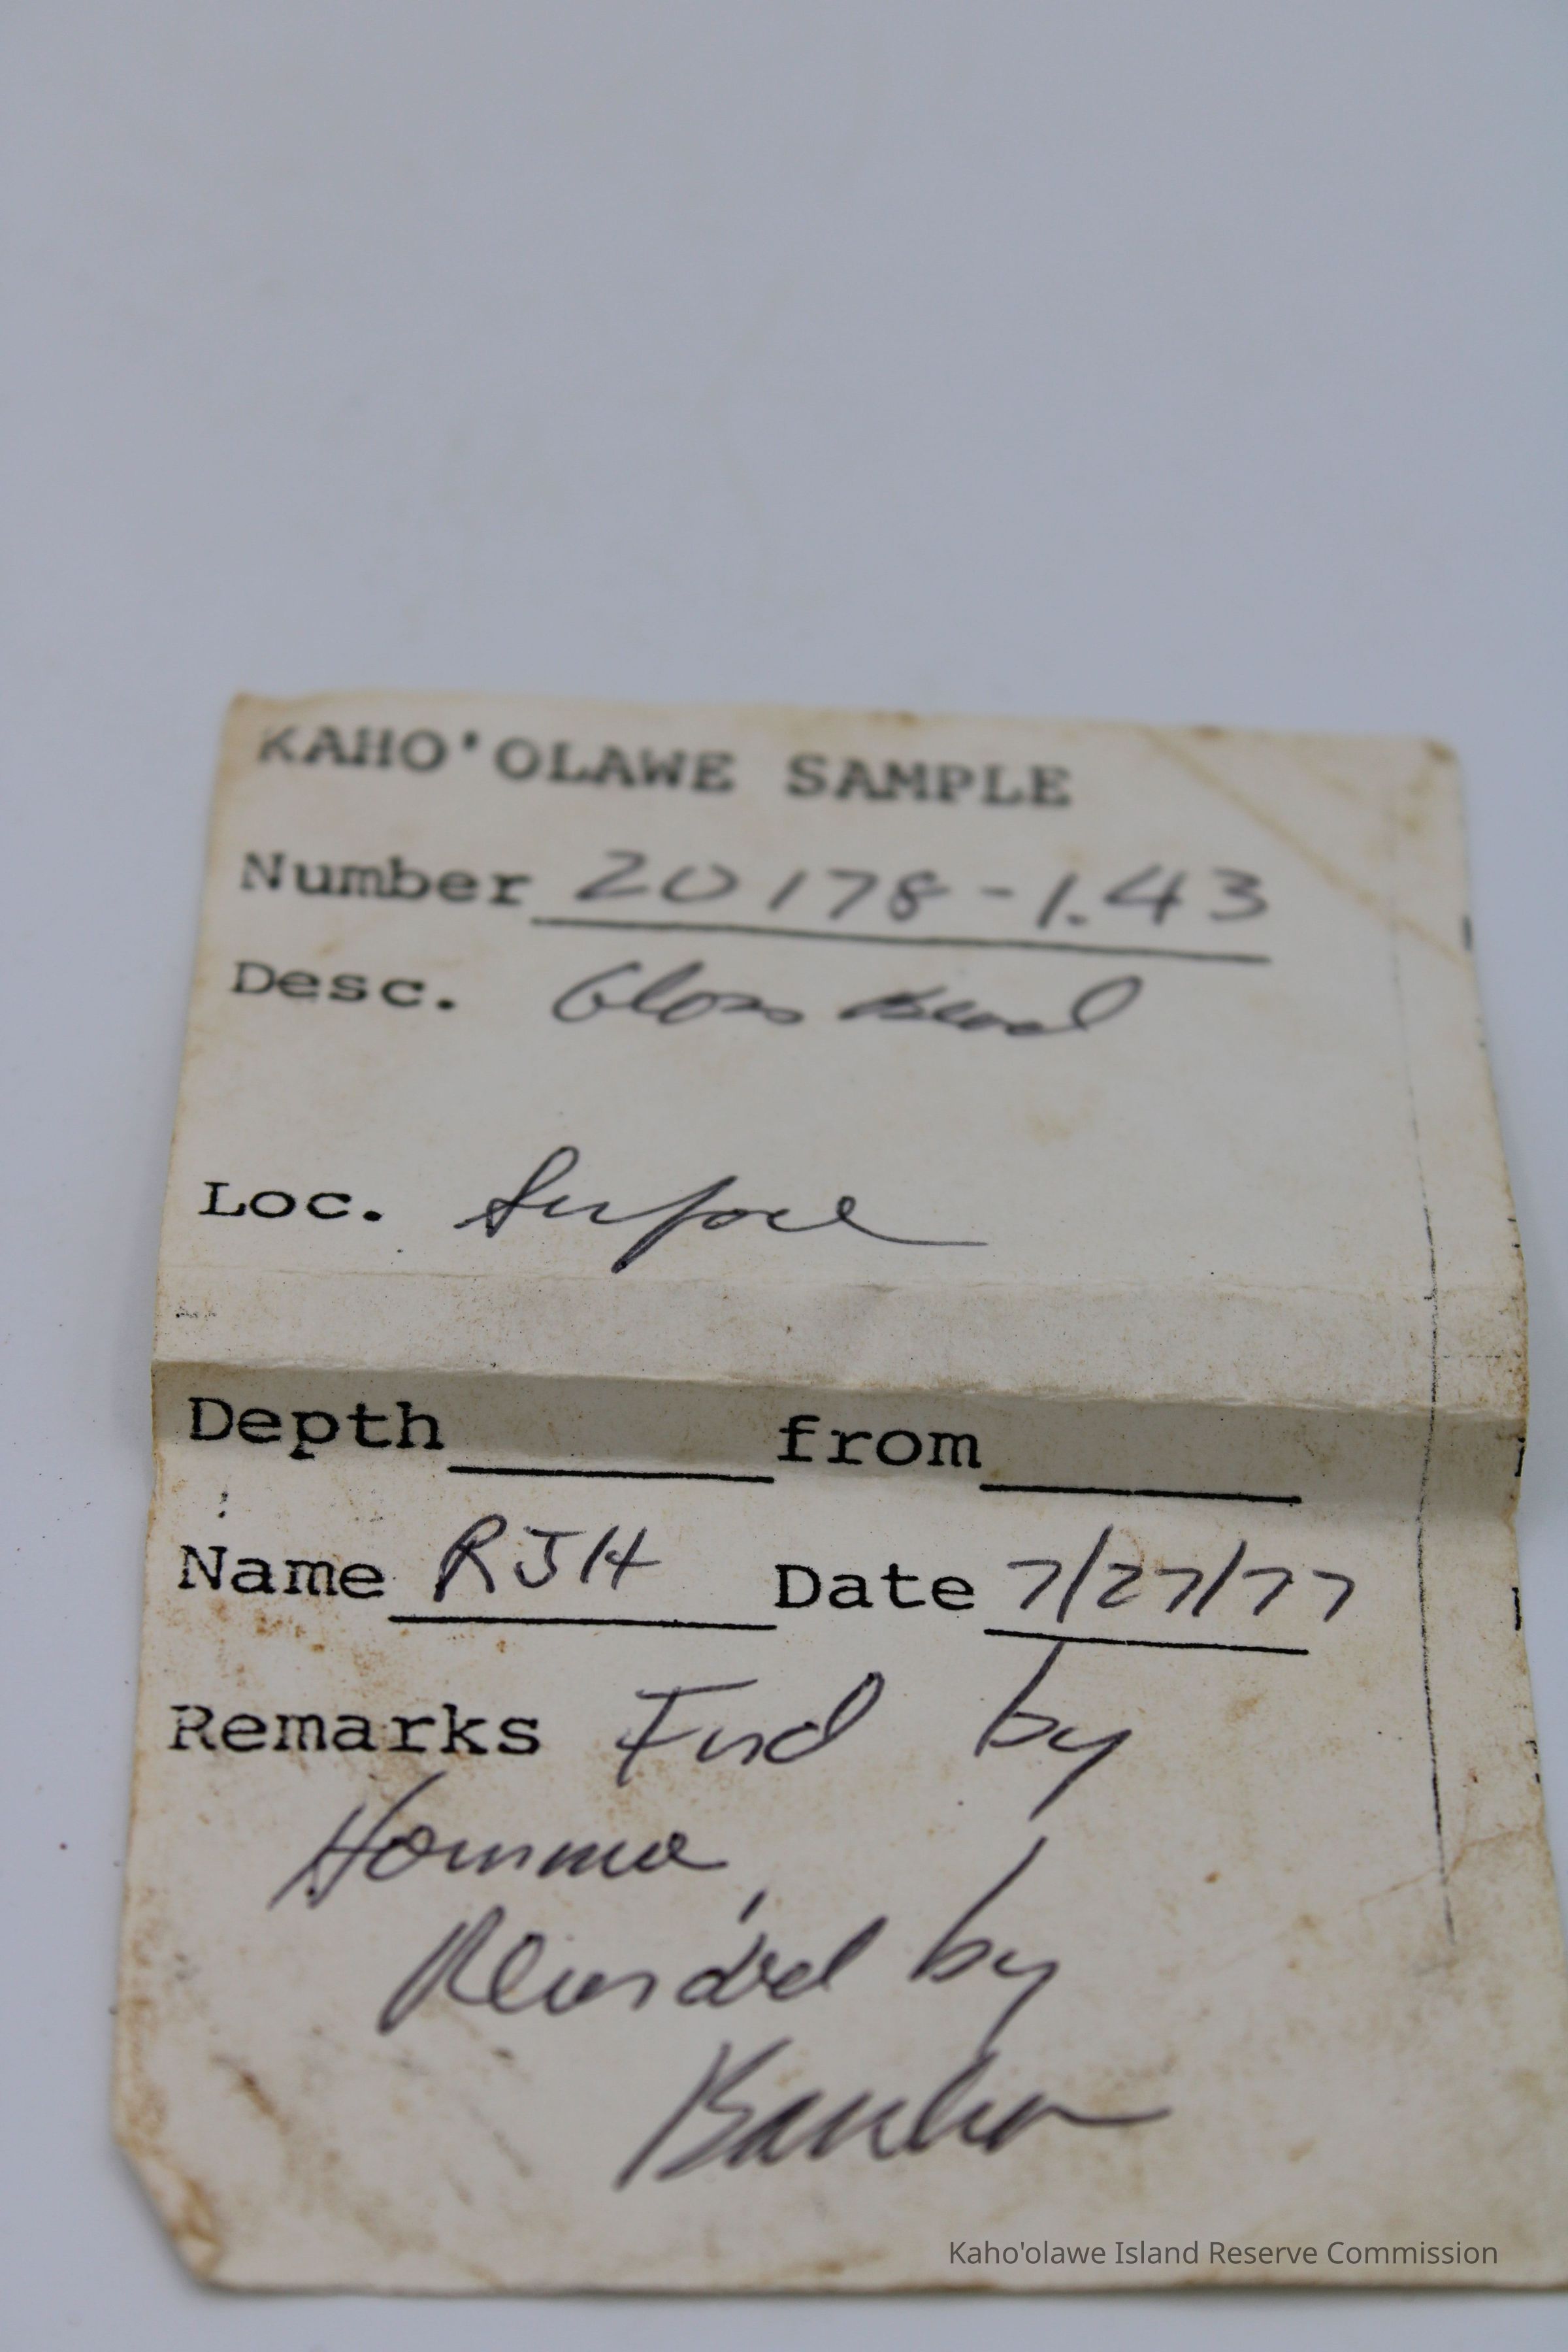 KAHO'OLAWE SAMPLE
Number 20178-1.43
Desc. Glass Bead
Loc. Surface
Depth from
Name RJH Date 7/27/77
Remarks Fnd by
Homma,
by
Kaho'olawe Island Reserve Commission